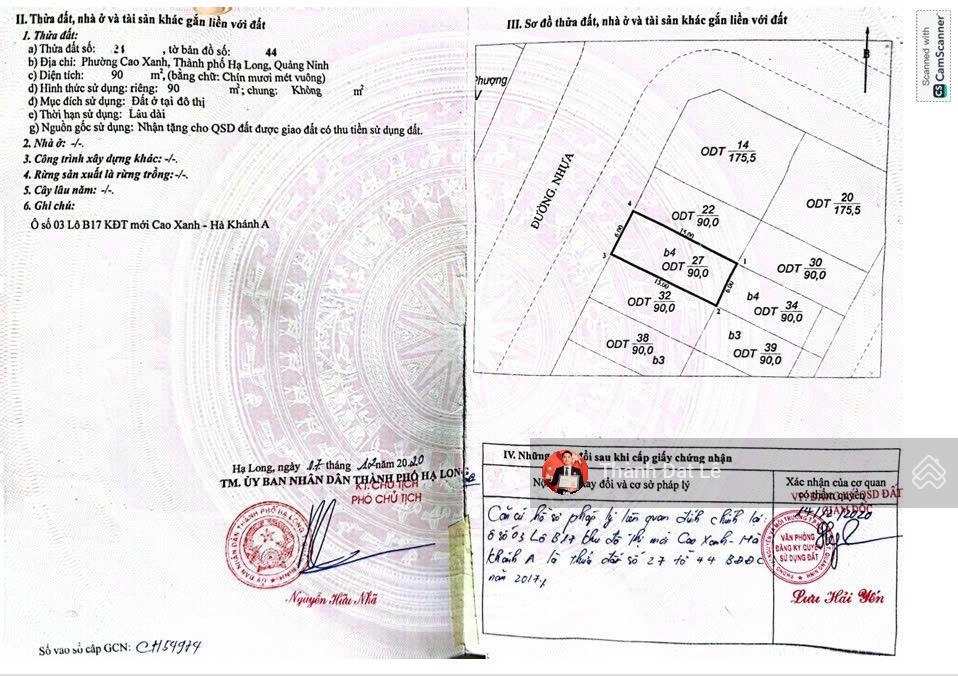 II. Thửa đất, nhà ở và tài sản khác gắn liền với đất
1. Thửa đất:
a) Thửa đất số: 21 , tờ bản đồ số: 44
b) Địa chỉ: Phường Cao Xanh, Thành phố Hạ Long, Quảng Ninh
c) Diện tích: 90 m², (bằng chữ: Chín mươi mét vuông)
d) Hình thức sử dụng: riêng: 90 m²; chung: Không m²
đ) Mục đích sử dụng: Đất ở tại đô thị
e) Thời hạn sử dụng: Lâu dài
g) Nguồn gốc sử dụng: Nhận tặng cho QSD đất được giao đất có thu tiền sử dụng đất.
2. Nhà ở: -/-.
3. Công trình xây dựng khác: -/-.
4. Rừng sản xuất là rừng trồng:-/-.
5. Cây lâu năm: -/-.
6. Ghi chú:
Ô số 03 Lô B17 KĐT mới Cao Xanh - Hà Khánh A
Hạ Long, ngày 17 tháng 12 năm 2020
TM. ỦY BAN NHÂN DÂN THÀNH PHỐ HẠ LONG
KT. CHỦ TỊCH
PHÓ CHỦ TỊCH
Nguyễn Hữu Nhã
Số vào sổ cấp GCN: CH54974
III. Sơ đồ thửa đất, nhà ở và tài sản khác gắn liền với đất
B
Phượng
V
ĐƯỜNG NHỰA
ODT 14
175,5
ODT 20
175,5
ODT 22
90,0
4
6.00
15.00
b4
ODT 27
90,0
1
3
15.00
6.00
2
ODT 30
90,0
b4
ODT 34
90,0
ODT 32
90,0
b3
ODT 39
90,0
ODT 38
90,0
b3
IV. Những đổi sau khi cấp giấy chứng nhận
ay đổi và cơ sở pháp lý
Xác nhận của cơ quan
có thẩm quyền
Thành Đạt Lê
QSD ĐẤT
GIÁM ĐỐC
14/12/2020
Căn cứ hồ sơ pháp lý liên quan đính chính lại:
Ô số 03 Lô B17 khu đô thị mới Cao Xanh - Hà
Khánh A là thửa đất số 27 tờ 44 BĐĐC
năm 2017,
VĂN PHÒNG
ĐĂNG KÝ QUYỀN
SỬ DỤNG ĐẤT
Lưu Hải Yến
Scanned with
CS CamScanner